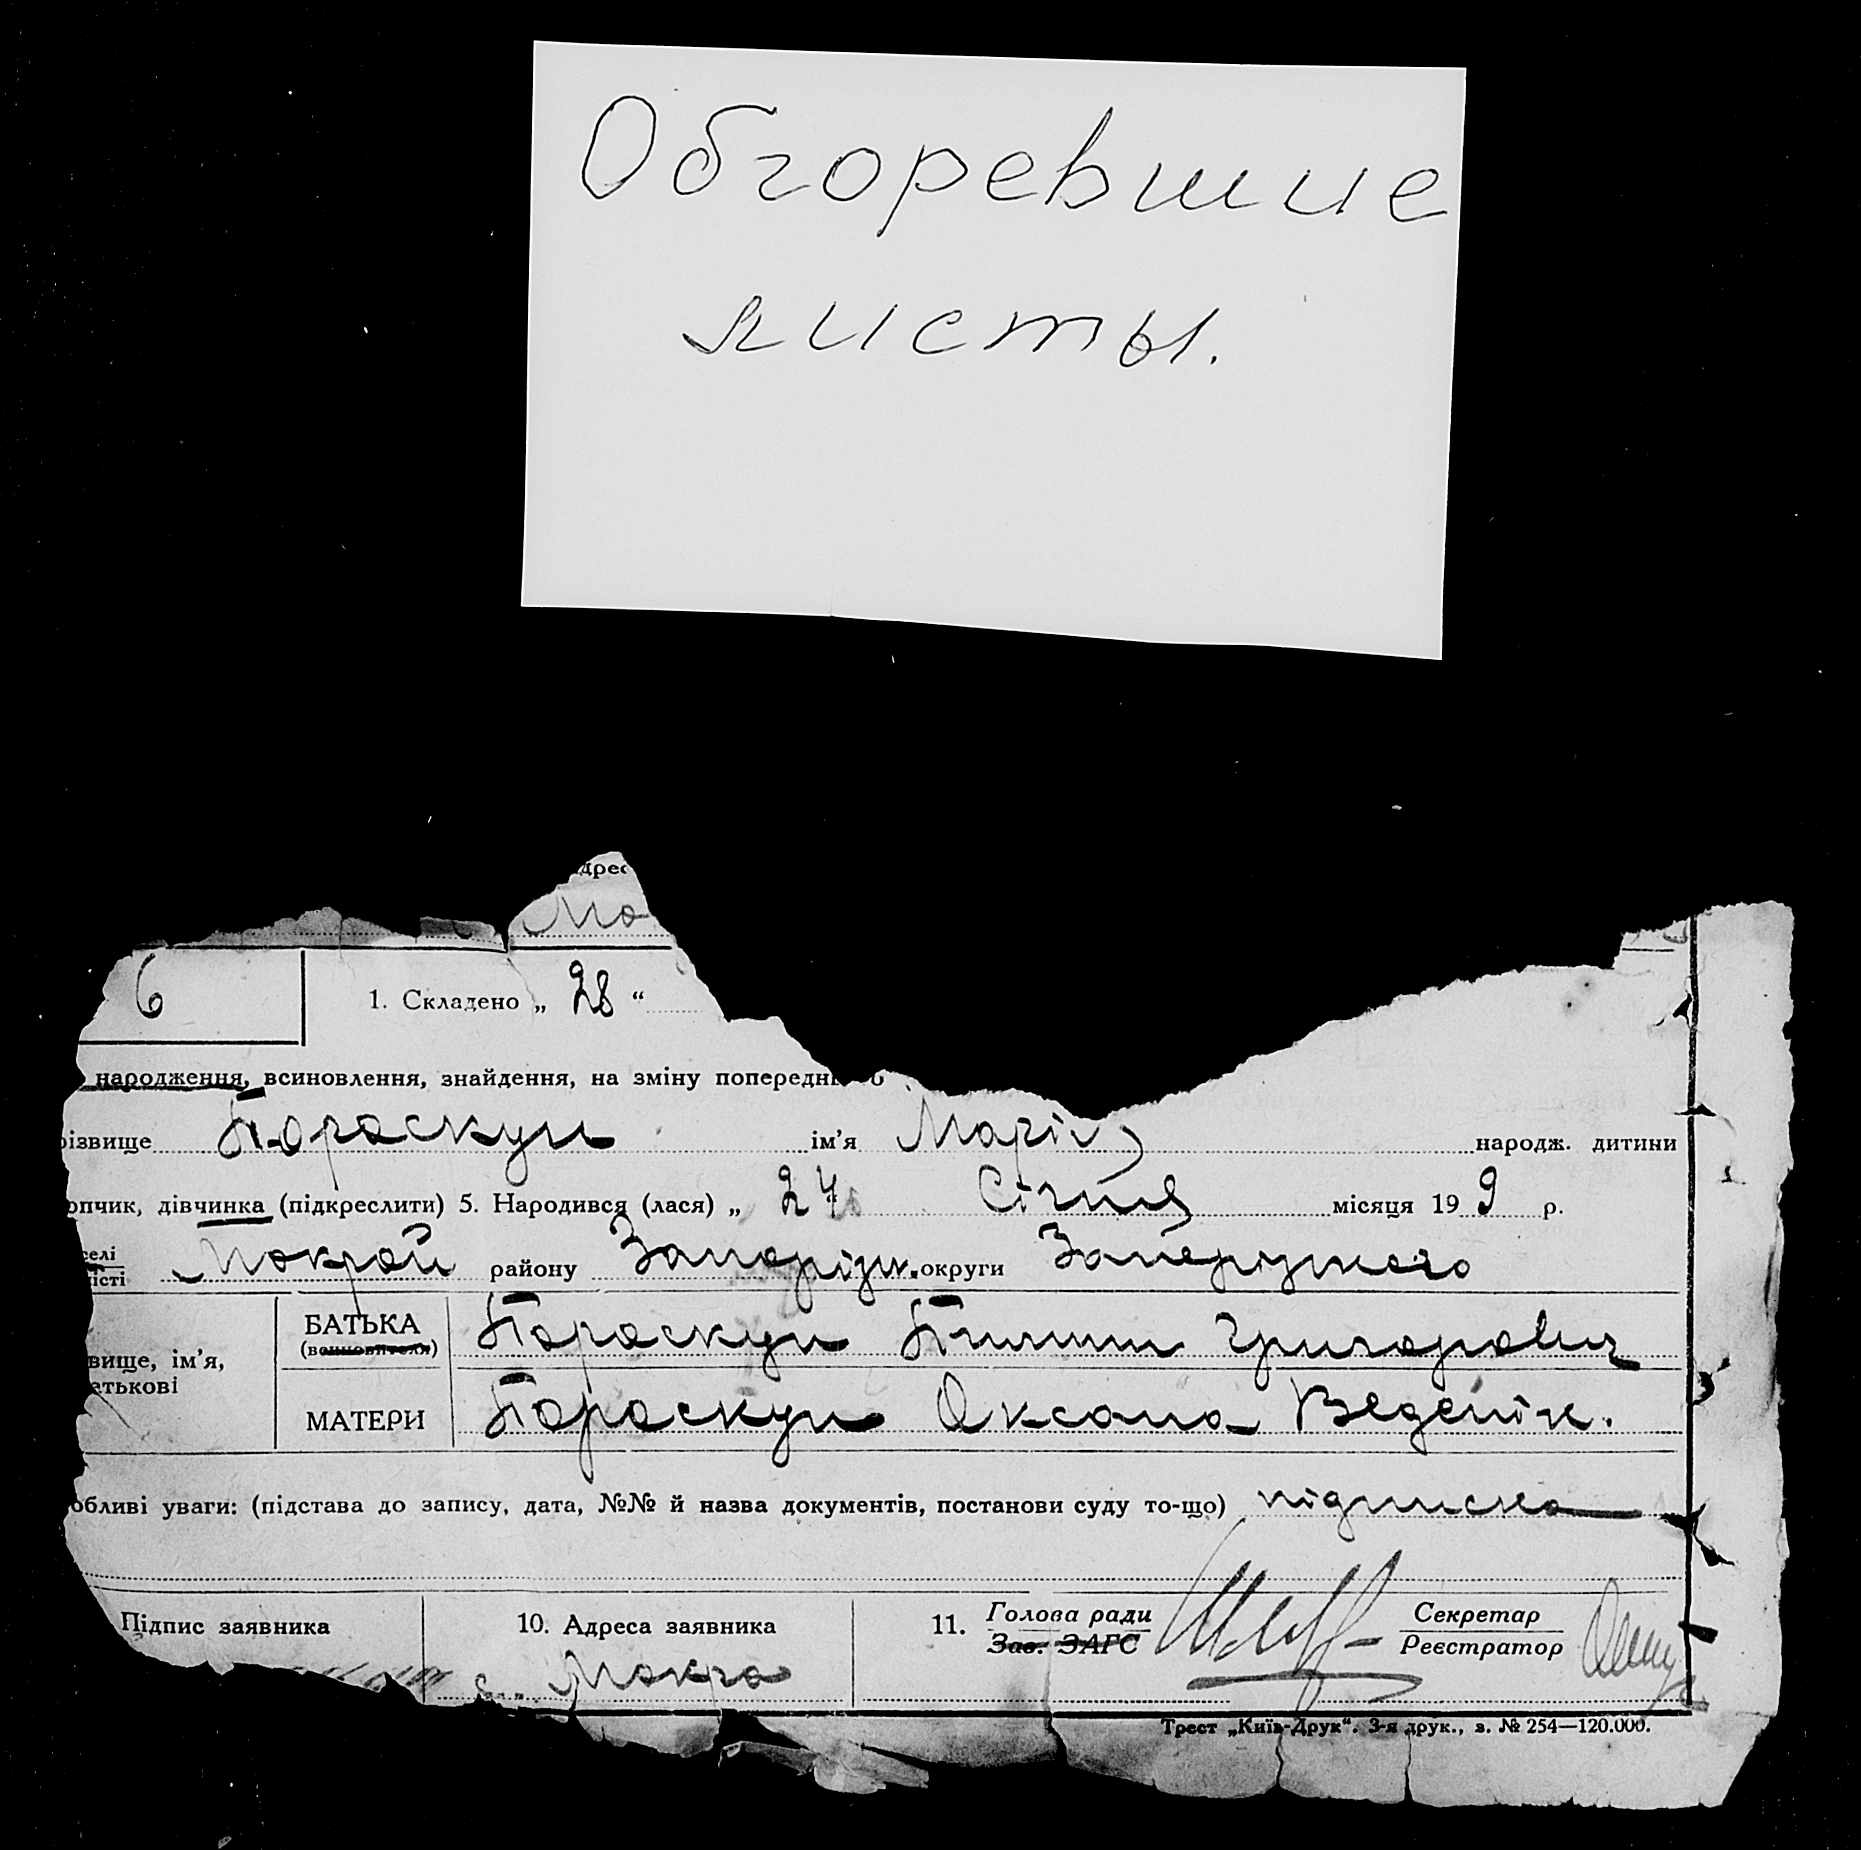 Обгоревшие
листы.
дрес
Мо
6
1. Складено „ 28 “
народження, всиновлення, знайдення, на зміну попередн
різвище Пораскун ім’я Марія народж. дитини
опчик, дівчинка (підкреслити) 5. Народився (лася) „ 24 Січня місяця 19 9 р.
селі
місті Мокрой району Запоріж. округи Запоріжского
вище, ім’я,
атькові
БАТЬКА
(всиновителя)
Пораскун Пилип Григорович
МАТЕРИ Пораскун Оксана Веденік.
обливі уваги: (підстава до запису, дата, №№ й назва документів, постанови суду то-що) підписка
Підпис заявника
10. Адреса заявника
с. Мокра
11. Голова ради
Зав. ЗАГС
Секретар
Реєстратор
Трест „Київ-Друк“. 3-я друк., з. № 254—120.000.